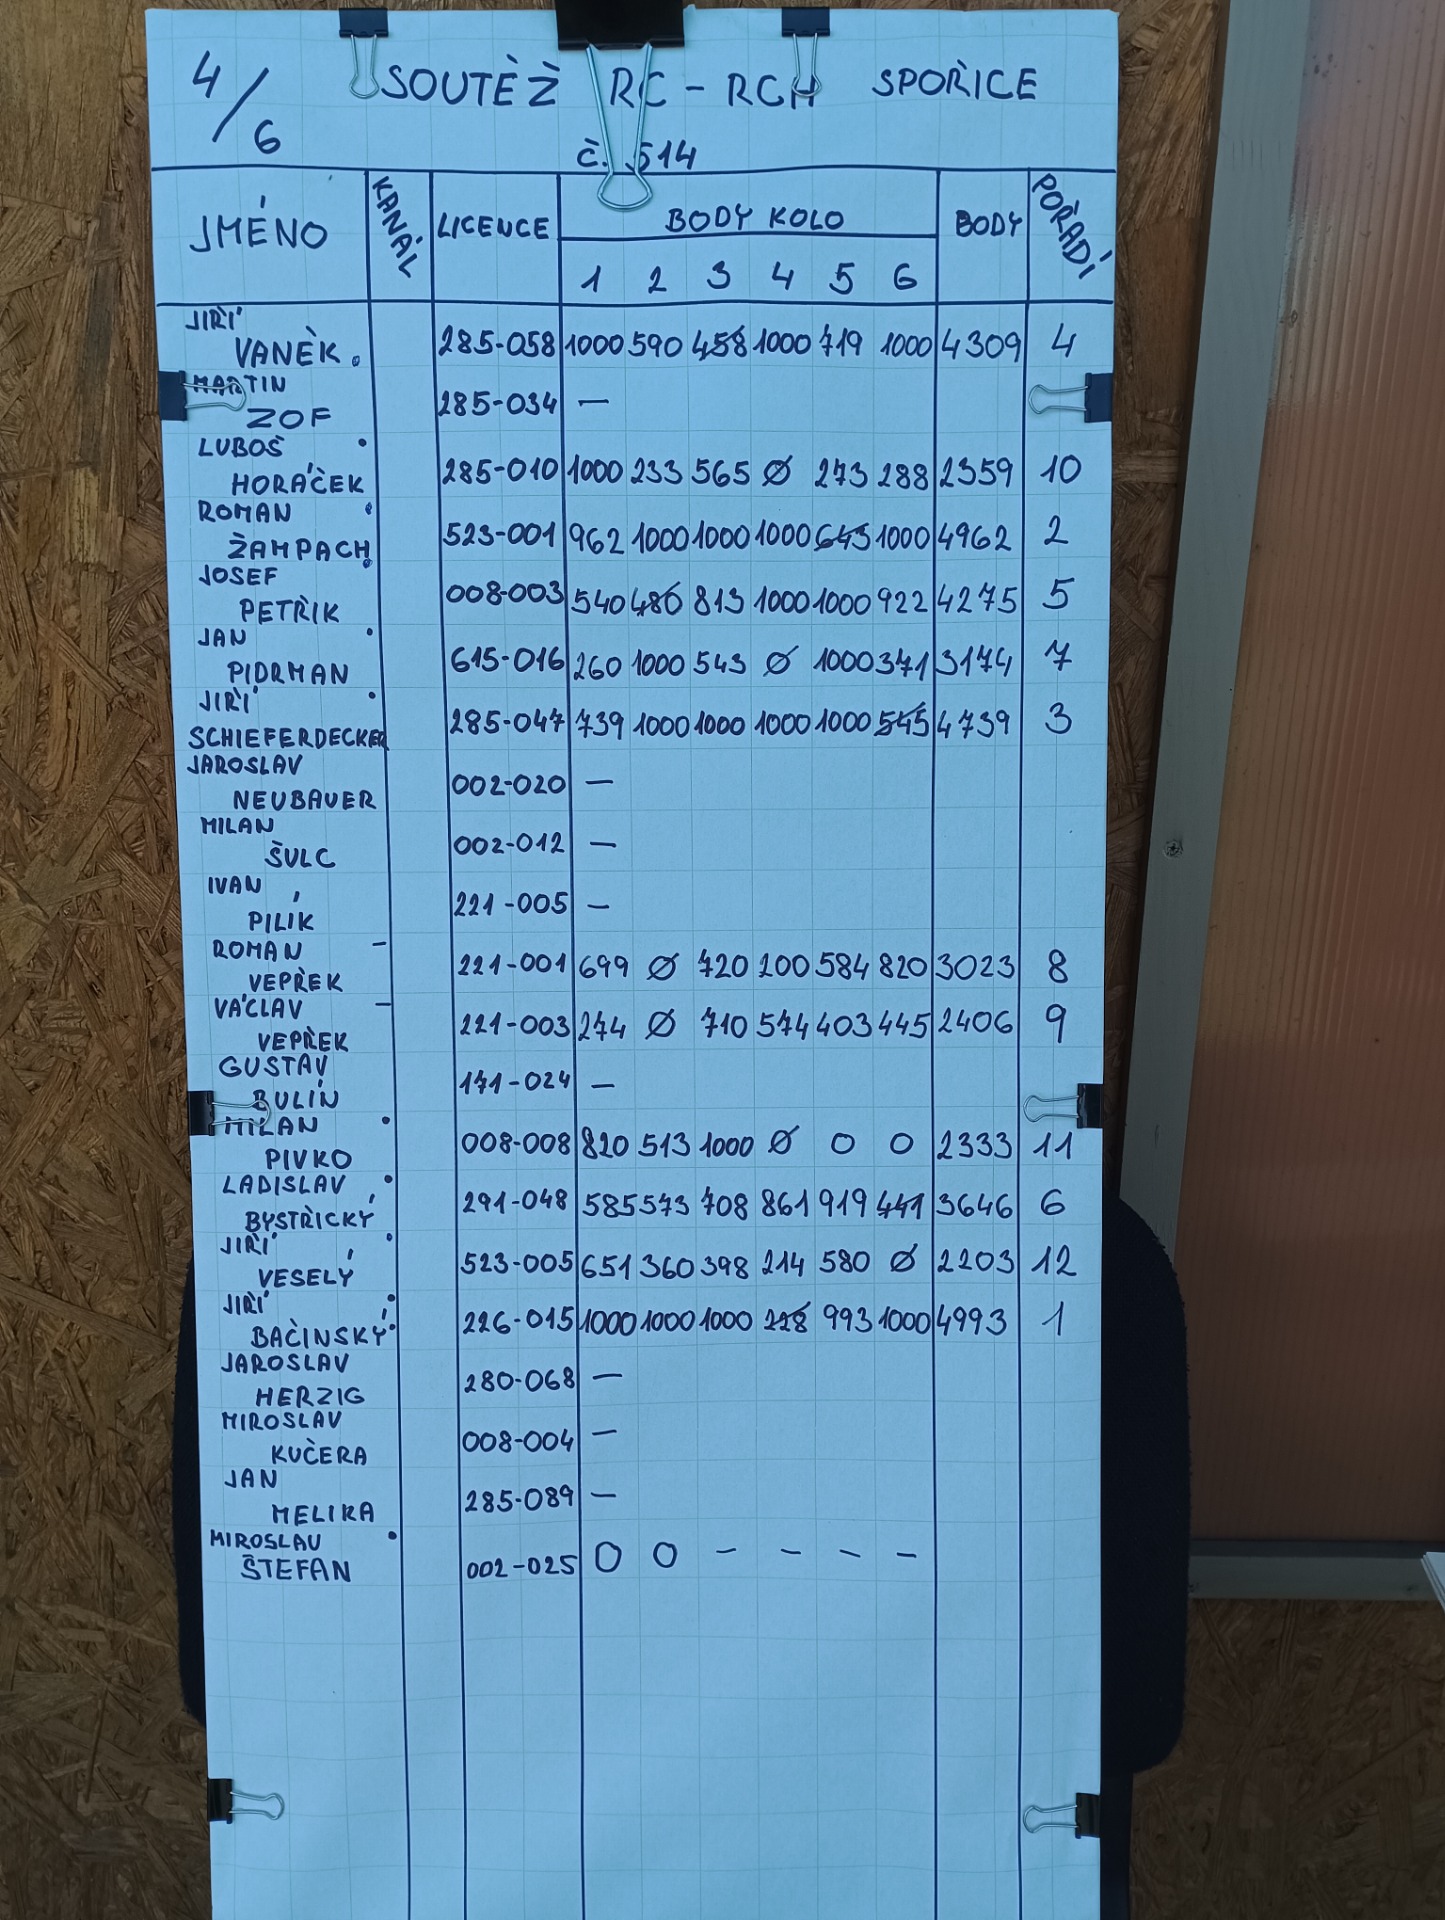 4/6 SOUTĚŽ RC - RCH SPOŘICE
č. 514
JMÉNO KANÁL LICENCE BODY KOLO BODY POŘADÍ
1 2 3 4 5 6
JIŘÍ
VANĚK 285-058 1000 590 458 1000 719 1000 4309 4
MARTIN
ZOF 285-034 —
LUBOŠ
HORÁČEK 285-010 1000 233 565 Ø 273 288 2359 10
ROMAN
ŽAMPACH 523-001 962 1000 1000 1000 643 1000 4962 2
JOSEF
PETŘIK 008-003 540 486 813 1000 1000 922 4275 5
JAN
PIDRMAN 615-016 260 1000 543 Ø 1000 371 3174 7
JIŘÍ
SCHIEFERDECKER 285-047 739 1000 1000 1000 1000 545 4739 3
JAROSLAV
NEUBAUER 002-020 —
MILAN
ŠULC 002-012 —
IVAN
PILÍK 221-005 —
ROMAN
VEPŘEK 221-001 699 Ø 720 200 584 820 3023 8
VÁCLAV
VEPŘEK 221-003 274 Ø 710 574 403 445 2406 9
GUSTAV
BULÍN 171-024 —
MILAN
PIVKO 008-008 820 513 1000 Ø 0 0 2333 11
LADISLAV
BYSTŘICKÝ 291-048 585 573 708 861 919 441 3646 6
JIŘÍ
VESELÝ 523-005 651 360 398 214 580 Ø 2203 12
JIŘÍ
BAČINSKÝ 226-015 1000 1000 1000 228 993 1000 4993 1
JAROSLAV
HERZIG 280-068 —
MIROSLAV
KUČERA 008-004 —
JAN
MELIKA 285-089 —
MIROSLAV
ŠTEFAN 002-025 0 0 - - - -